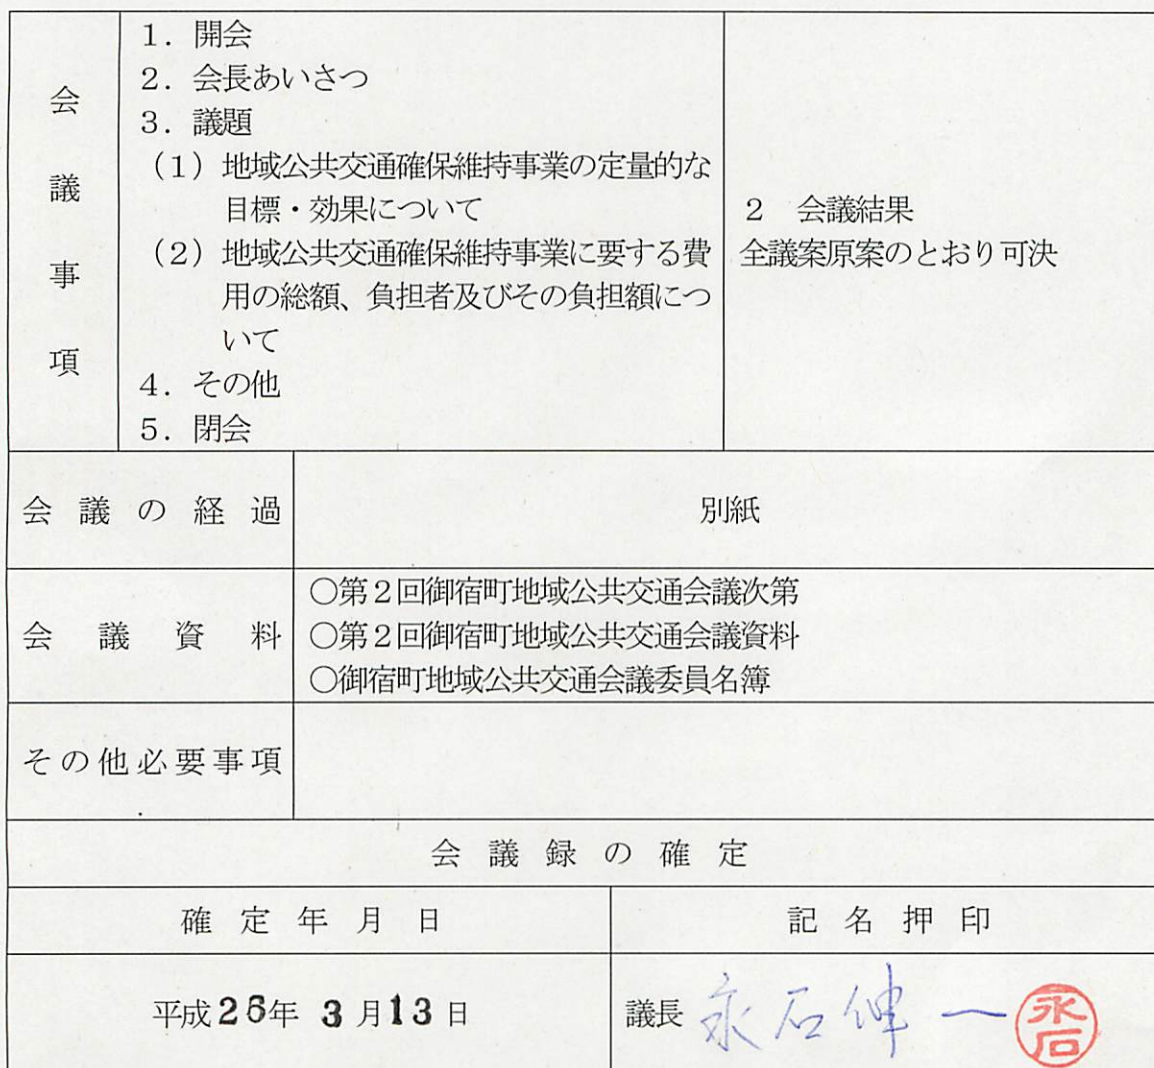 会議事項
1．開会
2．会長あいさつ
3．議題
（1）地域公共交通確保維持事業の定量的な
目標・効果について
（2）地域公共交通確保維持事業に要する費
用の総額、負担者及びその負担額につ
いて
4．その他
5．閉会
2　会議結果
全議案原案のとおり可決
会議の経過
別紙
会議資料
○第2回御宿町地域公共交通会議次第
○第2回御宿町地域公共交通会議資料
○御宿町地域公共交通会議委員名簿
その他必要事項
会議録の確定
確定年月日
記名押印
平成26年 3月13日
議長 永石伸一
永石